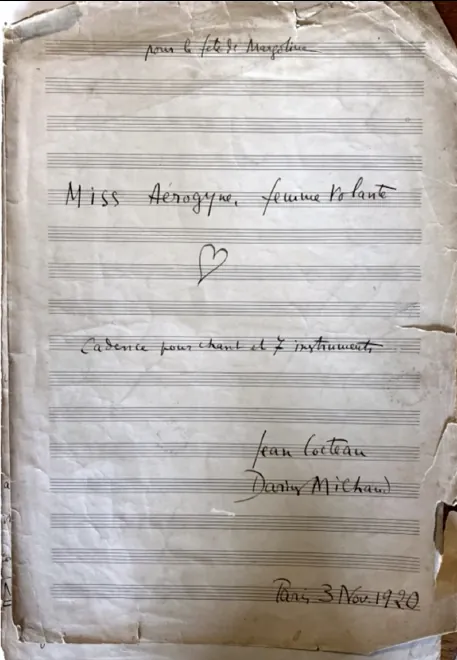 pour la fête de Margotine
Miss Aérogyne, femme volante
Cadence pour chant et 7 instruments
Jean Cocteau
Darius Milhaud
Paris 3 Nov. 1920